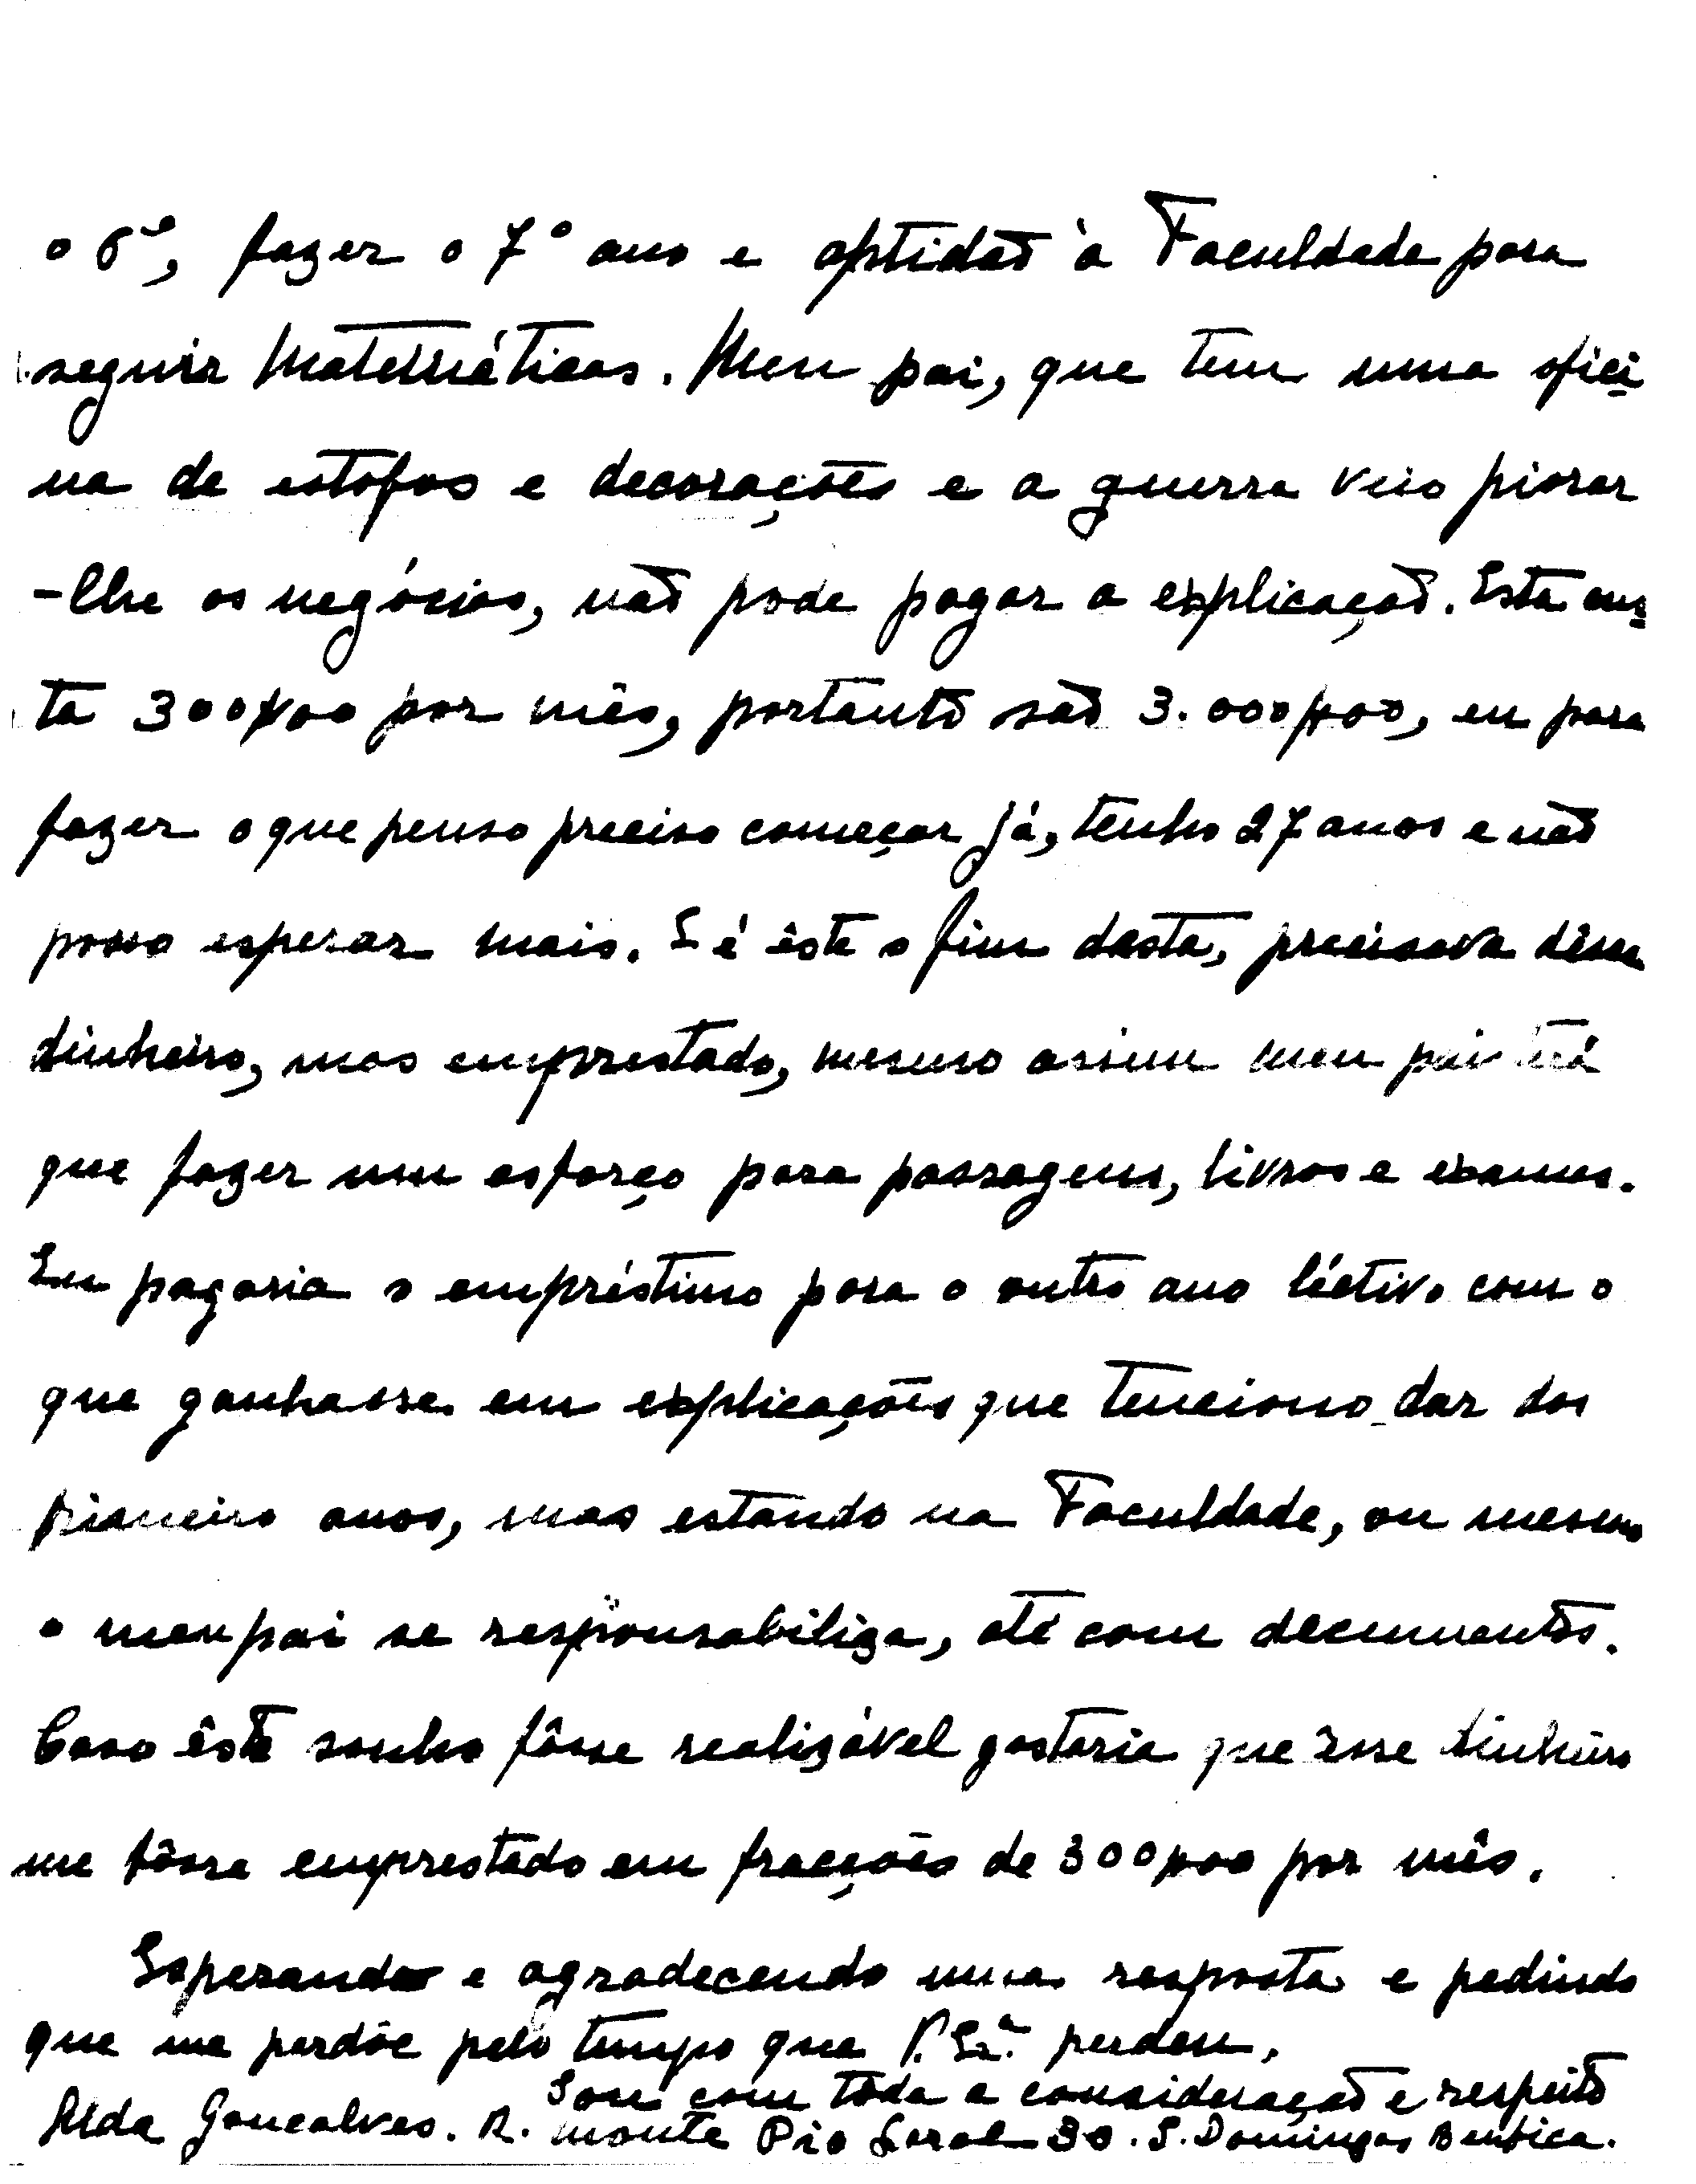 o 6º, fazer o 7º ano e aptidão à Faculdade para
seguir Matemáticas. Meu pai, que tem uma ofici
na de estofos e decorações e a guerra veio piorar
-lhe os negócios, não pode pagar a explicação. Esta cus
ta 300$00 por mês, portanto são 3.000$00, eu para
fazer o que penso preciso começar já, tenho 27 anos e não
posso esperar mais. E é êste o fim desta, precisava dêsse
dinheiro, mas emprestado, mesmo assim meu pai terá
que fazer um esforço para passagens, livros e exames.
Eu pagaria o empréstimo para o outro ano léctivo com o
que ganhasse em explicações que tenciono dar dos
primeiro anos, mas estando na Faculdade, ou mesmo
o meu pai se responsabiliza, até com documentos.
Caso êste sonho fôsse realizável gostaria que esse dinheiro
me fôsse emprestado em fracções de 300$00 por mês.
Esperando e agradecendo uma resposta e pedindo
que me perdôe pelo tempo que V. Exª. perdeu,
Sou com tôda a consideração e respeito
Alda Goncalves. R. Monte Pio Geral 30. S. Domingos Benfica.